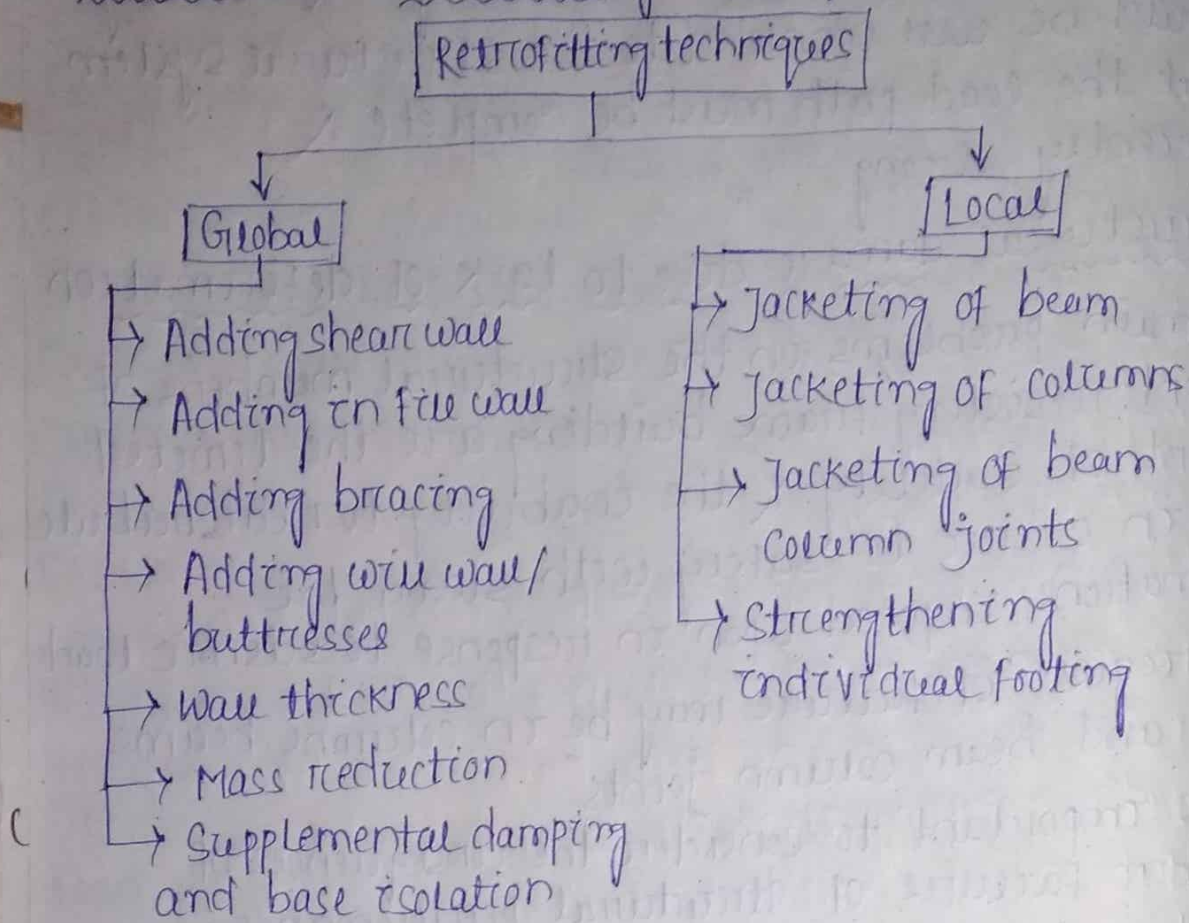 Retrofitting techniques
Global
→ Adding shear wall
→ Adding in fill wall
→ Adding bracing
→ Adding will wall/
buttresses
→ Wall thickness
→ Mass reduction
→ Supplemental damping
and base isolation
Local
→ Jacketing of beam
→ Jacketing of columns
→ Jacketing of beam
column joints
→ Strengthening
individual footing